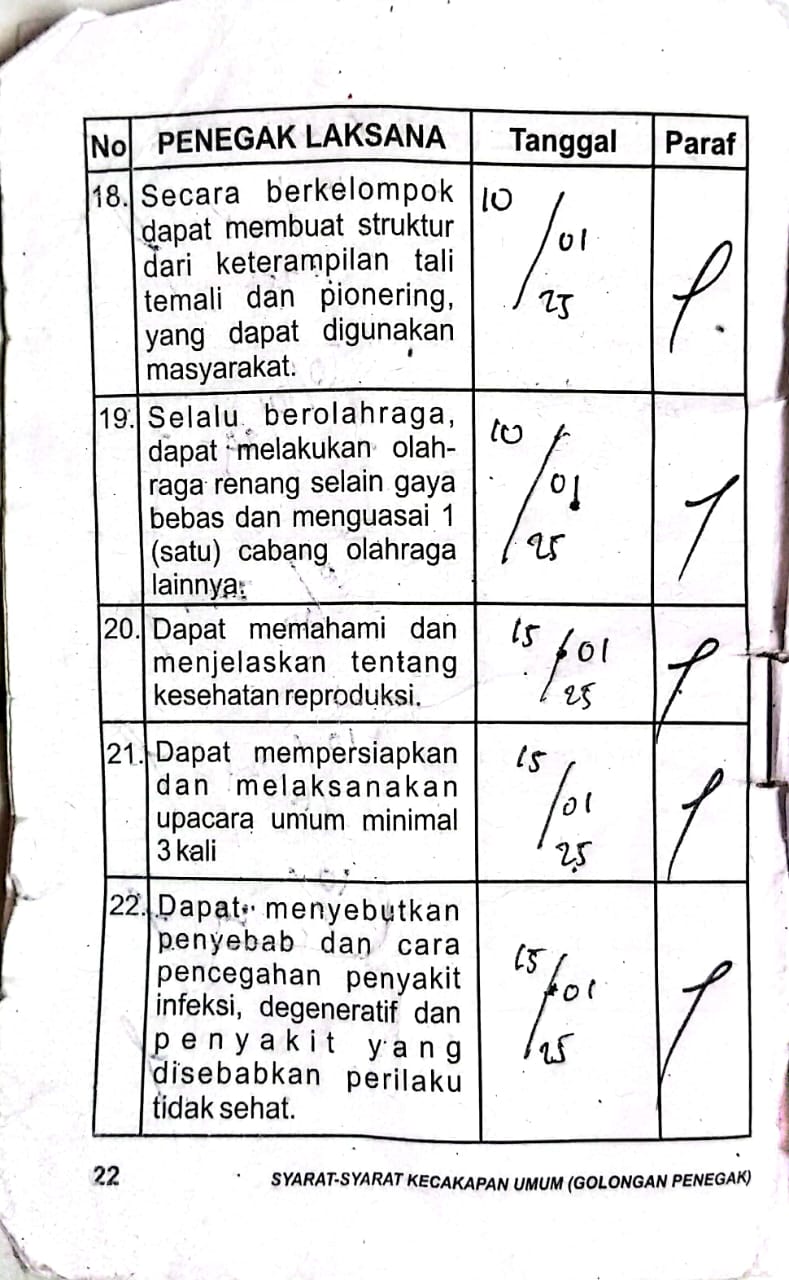 No PENEGAK LAKSANA Tanggal Paraf
18. Secara berkelompok
dapat membuat struktur
dari keterampilan tali
temali dan pionering,
yang dapat digunakan
masyarakat.
10/01
25
19. Selalu berolahraga,
dapat melakukan olah-
raga renang selain gaya
bebas dan menguasai 1
(satu) cabang olahraga
lainnya.
10/01
25
20. Dapat memahami dan
menjelaskan tentang
kesehatan reproduksi.
15/01
25
21. Dapat mempersiapkan
dan melaksanakan
upacara umum minimal
3 kali
15/01
25
22. Dapat menyebutkan
penyebab dan cara
pencegahan penyakit
infeksi, degeneratif dan
penyakit yang
disebabkan perilaku
tidak sehat.
15/01
25
22 SYARAT-SYARAT KECAKAPAN UMUM (GOLONGAN PENEGAK)